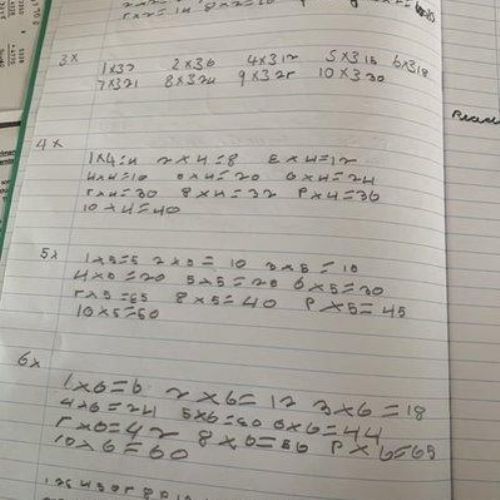 3x
1x33 2x36 4x312 5x315 6x318
7x321 8x324 9x32r 10x330
4x
1x4=4 2x4=8 3x4=12
4x4=10 5x4=20 6x4=24
rx4=30 8x4=32 Px4=36
10x4=40
5x
1x5=5 2x5=10 3x5=10
4x5=20 5x5=20 6x5=30
rx5=65 8x5=40 Px5=45
10x5=50
6x
1x6=6 2x6=12 3x6=18
4x6=24 5x6=50 6x6=44
rx6=42 8x6=56 Px6=65
10x6=60